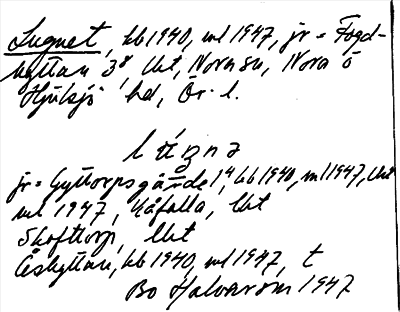 Lugnet, kb 1940, ml 1947, jr = Fogd-
hyttan 3⁸, lht, Nora sn, Nora o
Hjulsjö hd, Ör. l.
jr = Gyttorps gärde 1⁴, kb 1940, ml 1947, lht
ml 1947, Kåfalla, lht
Skofttorp, lht
Åshyttan, kb 1940, ml 1947, t
Bo Halvarson 1947